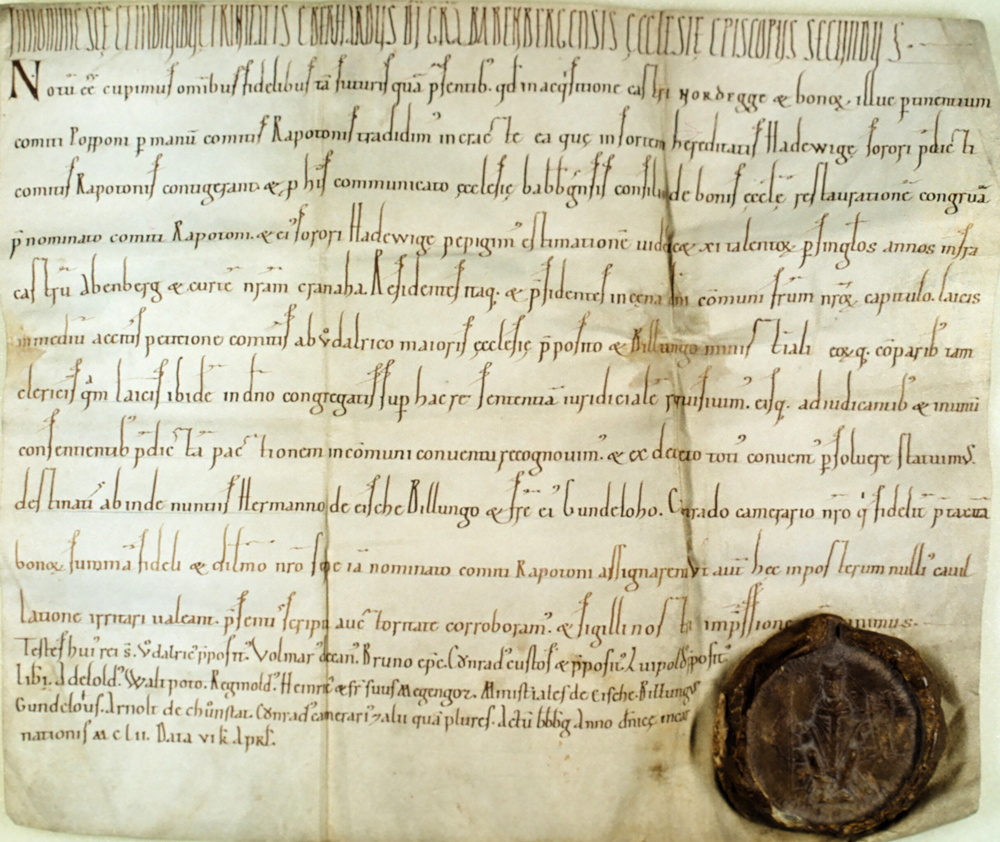 IN NOMINE SCĘ ET INDIVIDUE TRINITATIS EBERHARDUS DI GRA BABENBERGENSIS ĘCCLESIĘ EPISCOPUS SECUNDUS
Notū eē cupimus omībus fidelibus tā futuris quā p̄sentib. qd in acq̇sitione castri NORDEGGE & bonoꝝ illuc ꝑtinentium
comiti Popponi ꝑ manū comitis Rapotonis tradidim' in erać te ea quę in sortem hereditatis Hadewige sorori p̄dicti
comitis Rapotonis contigerant. & ꝑ his communicato ęcclesię babbgnsis consilio de bonis ęcclę restaurationē congruā
p̄nominato comiti Rapotoni. & ei' sorori Hadewige pepigim' estimationē uidę& xi talentoꝝ ꝑ singlos annos infra
castrū Abenberg & curtē nr̄am cranaha. Residentes itaq. & p̄sidentes in cena dni cōmuni fr̄um nr̄oꝝ capitulo. laicis
in mediū accitis petitione comitis ab Vͦdalrico maioris ęcclesię p̄posito & Billungo ministiali eoꝝq. cōparib tam
clericis qͣm laicis ibidē in dno congregatis sup hac re sententiā iuridicialē rquisiuim. eisq. adiudicantib & in unū
consentientib p̄dictā pactionem in cōmuni conuentu recognouim. & ex debito toti' conuent' ꝑsoluere statuimus.
destinati ab inde nuntiis Hermanno de eische Billungo & fr̄e ei' Gundeloho. Cͦnrado camerario nr̄o qͥ fidelit p̄taxatā
bonoꝝ summā fideli & dil̄mo nr̄o sepe iā nominato comiti Rapotoni assignarent Vt aut̄ hec in posterum nulli' cauil
latione irritari ualeant. p̄senti' scripti auctoritate corroboram'. & sigilli nostri imp̄ssione
Testes hui' rei s. Vͦdalric' p̄posit'. Volmar' decan'. Bruno ep̄c. Cͦnrad' custos & p̄posit'. Luipold' p̄posit'.
Libi. Adelold'. Waltpoto. Reginold'. Heinric' & fr̄ suus Megengoz. Ministiales de Eische. Billungus
Gundelous. Arnolt de chunstat. Cͦnrad' camerari' & alii quā plures. Actū bbbg. Anno dn̄icę incar
nationis M C LII. Data VI k̄. Aprl̄.